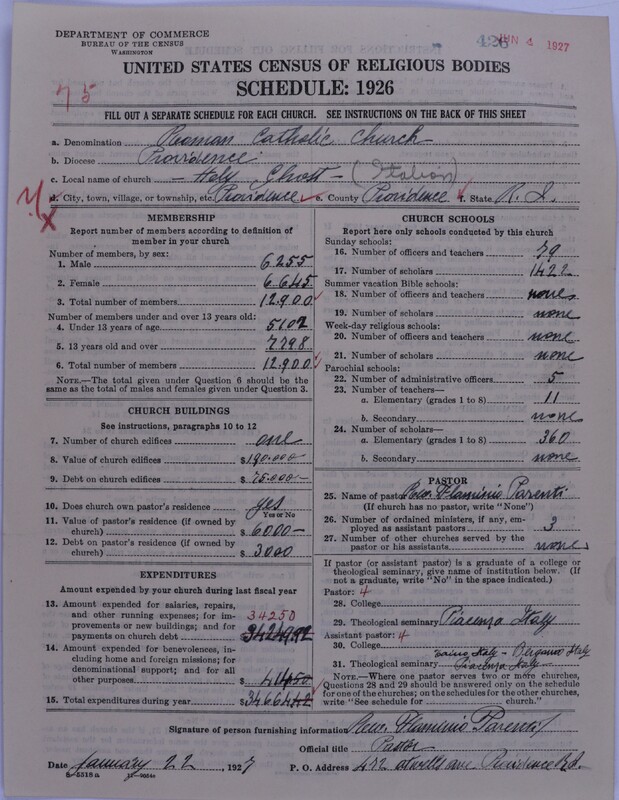 DEPARTMENT OF COMMERCE
BUREAU OF THE CENSUS
WASHINGTON
426 JUN 4 1927
UNITED STATES CENSUS OF RELIGIOUS BODIES
SCHEDULE: 1926
75
FILL OUT A SEPARATE SCHEDULE FOR EACH CHURCH. SEE INSTRUCTIONS ON THE BACK OF THIS SHEET
a. Denomination Roman Catholic Church
b. Diocese Providence
c. Local name of church - Holy Ghost - (Italian)
d. City, town, village, or township, etc. Providence e. County Providence f. State R. I.
MEMBERSHIP
Report number of members according to definition of member in your church
Number of members, by sex:
1. Male 6255
2. Female 6.645
3. Total number of members 12.900
Number of members under and over 13 years old:
4. Under 13 years of age 5102
5. 13 years old and over 7798
6. Total number of members 12.900
NOTE.—The total given under Question 6 should be the same as the total of males and females given under Question 3.
CHURCH BUILDINGS
See instructions, paragraphs 10 to 12
7. Number of church edifices one
8. Value of church edifices $190.000
9. Debt on church edifices $75.000
10. Does church own pastor's residence yes
Yes or No
11. Value of pastor's residence (if owned by church) $6000-
12. Debt on pastor's residence (if owned by church) $3000
EXPENDITURES
Amount expended during last fiscal year
13. Amount expended for salaries, repairs, and other running expenses; for improvements or new buildings; and for payments on church debt 34250
14. Amount expended for benevolences, including home and foreign missions; for denominational support; and for all other purposes
15. Total expenditures during year
CHURCH SCHOOLS
Report here only schools conducted by this church
Sunday schools:
16. Number of officers and teachers 79
17. Number of scholars 1422
Summer vacation Bible schools:
18. Number of officers and teachers none
19. Number of scholars none
Week-day religious schools:
20. Number of officers and teachers none
21. Number of scholars none
Parochial schools:
22. Number of administrative officers 5
23. Number of teachers—
a. Elementary (grades 1 to 8) 11
b. Secondary none
24. Number of scholars—
a. Elementary (grades 1 to 8) 360
b. Secondary none
PASTOR
25. Name of pastor Rev. Flaminio Parenti
(If church has no pastor, write "None")
26. Number of ordained ministers, if any, employed as assistant pastors 3
27. Number of other churches served by the pastor or his assistants none
If pastor (or assistant pastor) is a graduate of a college or theological seminary, give name of institution below. (If not a graduate, write "No" in the space indicated.)
Pastor: 4
28. College
29. Theological seminary Piacenza Italy
Assistant pastor: 4
30. College
Italy - Bergamo Italy
31. Theological seminary Piacenza Italy
NOTE.—Where one pastor serves two or more churches, Questions 28 and 29 should be answered only on the schedule for one of the churches; on the schedules for the other churches, write "See schedule for church."
Signature of person furnishing information Rev. Flaminio Parenti
Official title Pastor
Date January 22, 1927 P. O. Address 472 Atwells ave. Providence R.I.
8-5518a